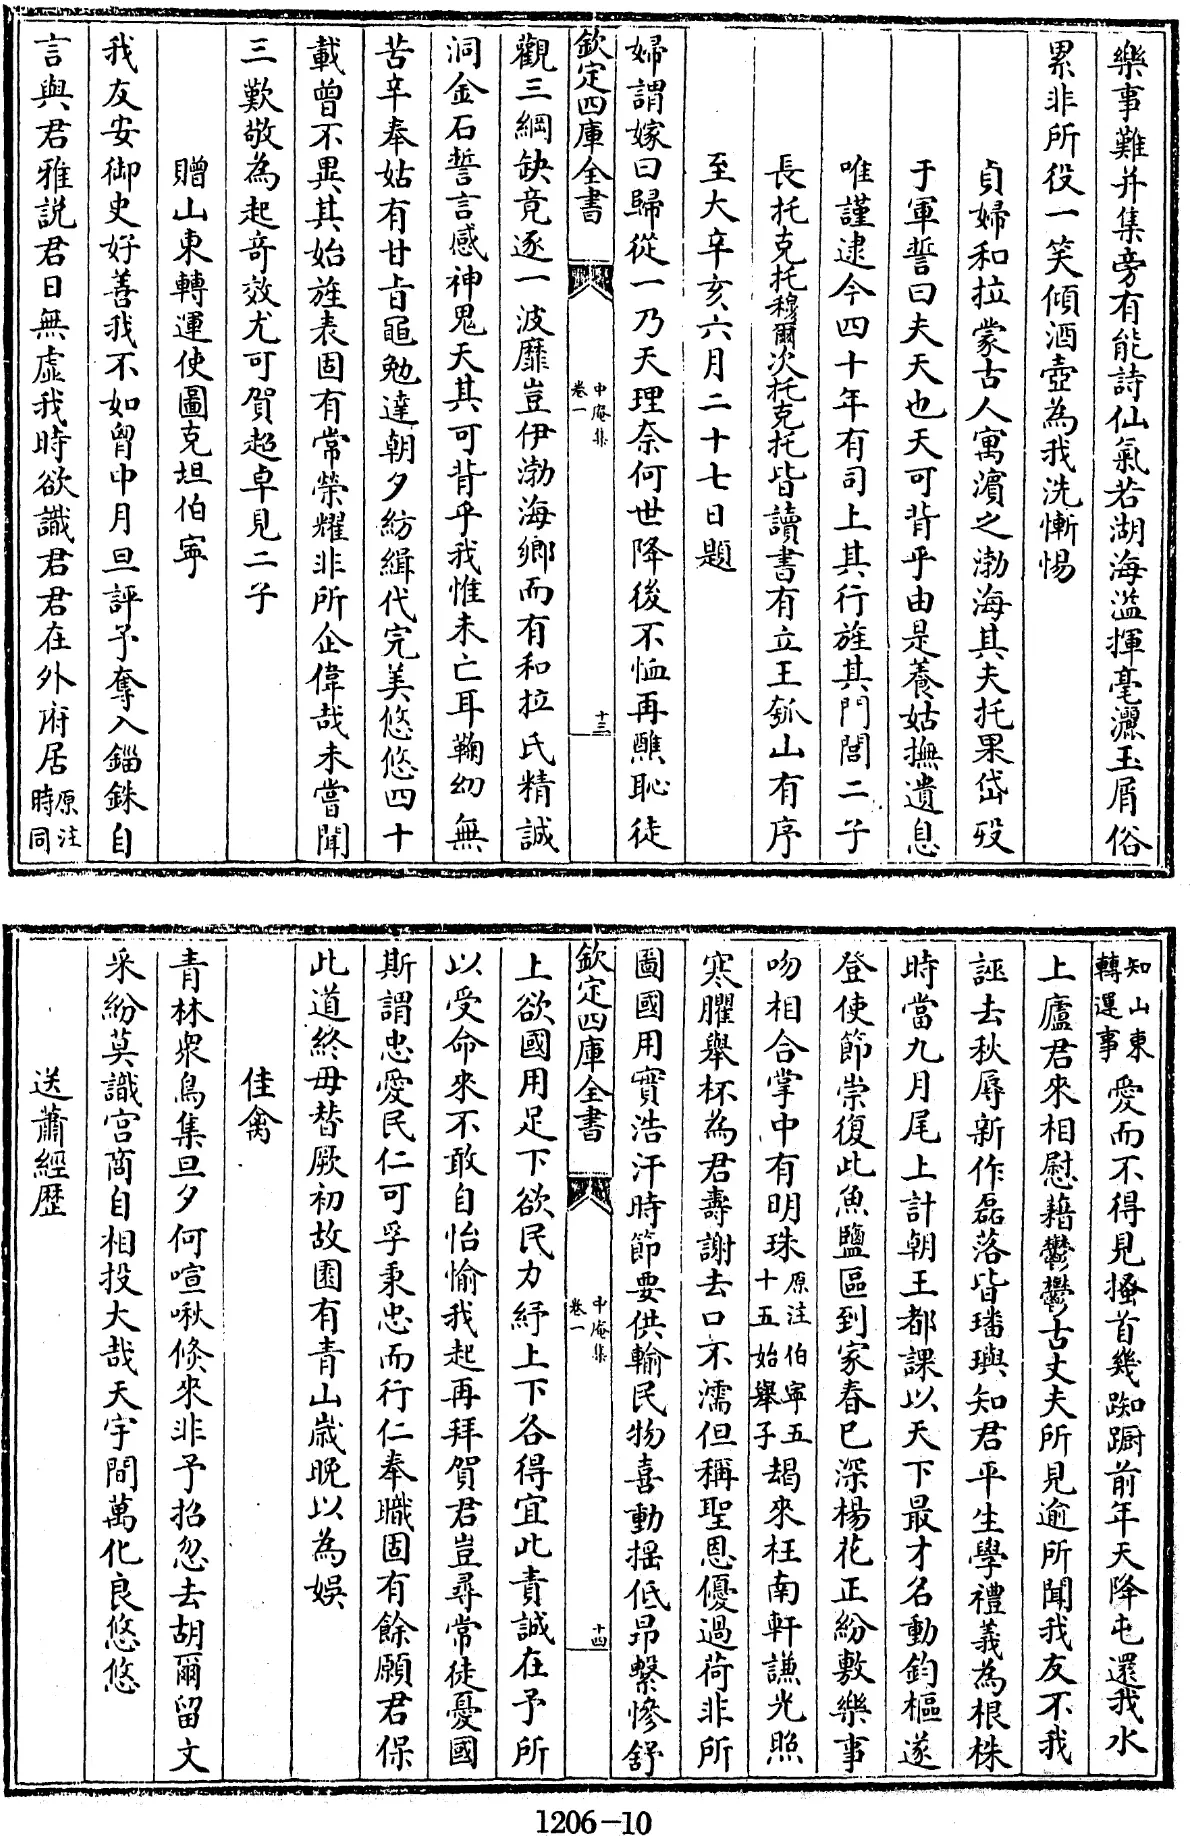 樂事難并集旁有能詩仙氣若湖海溢揮毫灑玉屑俗
累非所役一笑傾酒壺為我洗慚惕
貞婦和拉蒙古人寓濱之渤海其夫托果岱歿
于軍誓曰夫天也天可背乎由是養姑撫遺息
唯謹逮今四十年有司上其行旌其門閭二子
長托克托穆爾次托克托皆讀書有立王瓠山有序
至大辛亥六月二十七日題
婦謂嫁曰歸從一乃天理奈何世降後不恤再醮恥徒
欽定四庫全書
中庵集
卷一
十三
觀三綱缺竟逐一波靡豈伊渤海鄉而有和拉氏精誠
洞金石誓言感神鬼天其可背乎我惟未亡耳鞠幼無
苦辛奉姑有甘旨黽勉達朝夕紡緝代完美悠悠四十
載曾不異其始旌表固有常榮耀非所企偉哉未嘗聞
三歎敬為起奇效尤可賀超卓見二子
贈山東轉運使圖克坦伯寧
我友安御史好善我不如胷中月旦評予奪入錙銖自
言與君雅説君日無虛我時欲識君君在外府居原注時同
知山東轉運事愛而不得見搔首幾踟蹰前年天降屯還我水
上廬君來相慰藉鬱鬱古丈夫所見逾所聞我友不我
誣去秋辱新作磊落皆璠璵知君平生學禮義為根株
時當九月尾上計朝王都課以天下最才名動鈞樞遂
登使節崇復此魚鹽區到家春已深楊花正紛敷樂事
吻相合掌中有明珠原注伯寧五十五始舉子朅來枉南軒謙光照
寒臞舉杯為君壽謝去口不濡但稱聖恩優過荷非所
圖國用實浩汗時節要供輸民物喜動揺低昻繫慘舒
欽定四庫全書
中庵集
卷一
十四
上欲國用足下欲民力紓上下各得宜此責誠在予所
以受命來不敢自怡愉我起再拜賀君豈尋常徒憂國
斯謂忠愛民仁可孚秉忠而行仁奉職固有餘願君保
此道終毋替厥初故園有青山歲晩以為娛
佳禽
青林衆鳥集旦夕何喧啾倐來非予招忽去胡爾留文
采紛莫識宫商自相投大哉天宇間萬化良悠悠
送蕭經歴
1206-10